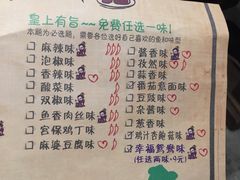 皇上有旨~~免费任选一味!
本题为必选题,需参各位选好自己喜欢的鱼和味型
麻辣味
泡椒味
香辣味
酸菜味
双椒味
鱼香肉丝味
宫保鸡丁味
麻婆豆腐味
酱香味
孜然味
蒜香味
番茄意面味
豆豉味
杂酱味
葱香味
鸡汁杏鲍菇味
幸福鸳鸯味
(任选两味,9元)